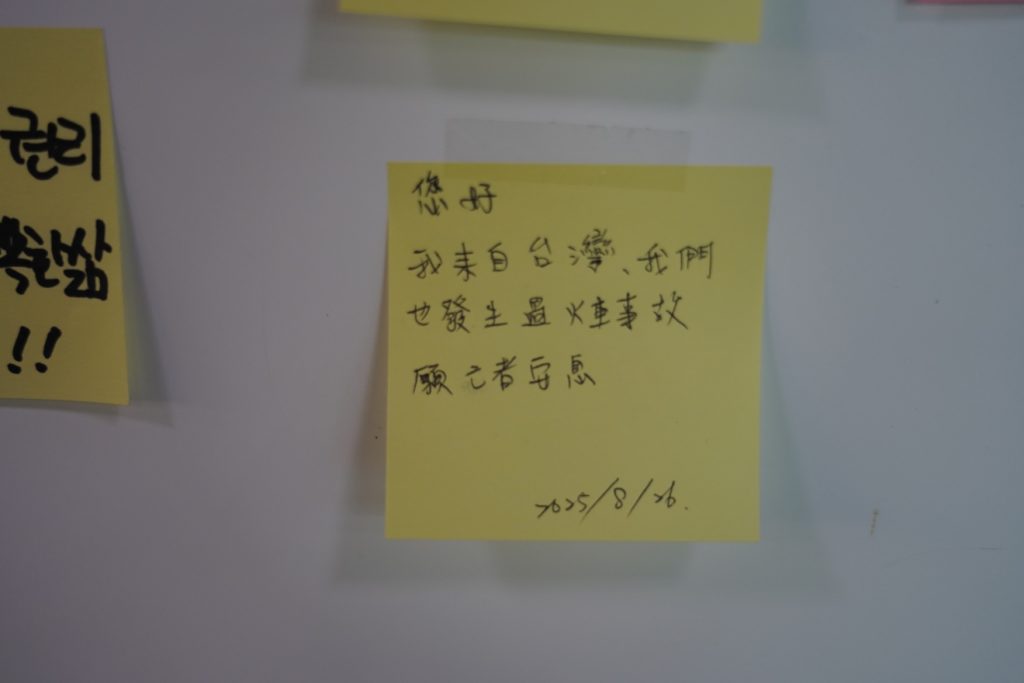 권리
!!
您好
我来自台灣、我們
也發生過火車事故
願亡者安息
2025/8/26.